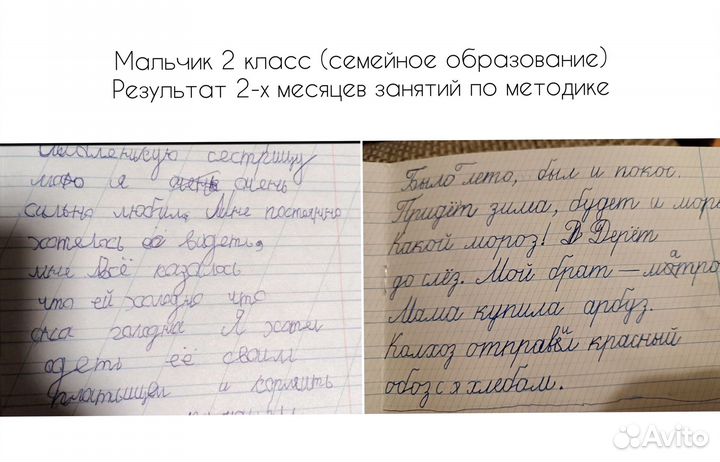 Мальчик 2 класс (семейное образование)
Результат 2-х месяцев занятий по методике
сестрицу
я очень
сильно любил. Мне постоянно
хотелось её видеть,
мне всё казалось
что ей холодно что
она голодна Я хотел
одеть её своим
и кормить
Было лето, был и покос.
Придёт зима, будет и моро
Какой мороз! Дерёт
до слёз. Мой брат — матро
Мама купила арбуз.
Колхоз отправил красный
обоз с хлебом.
Avito